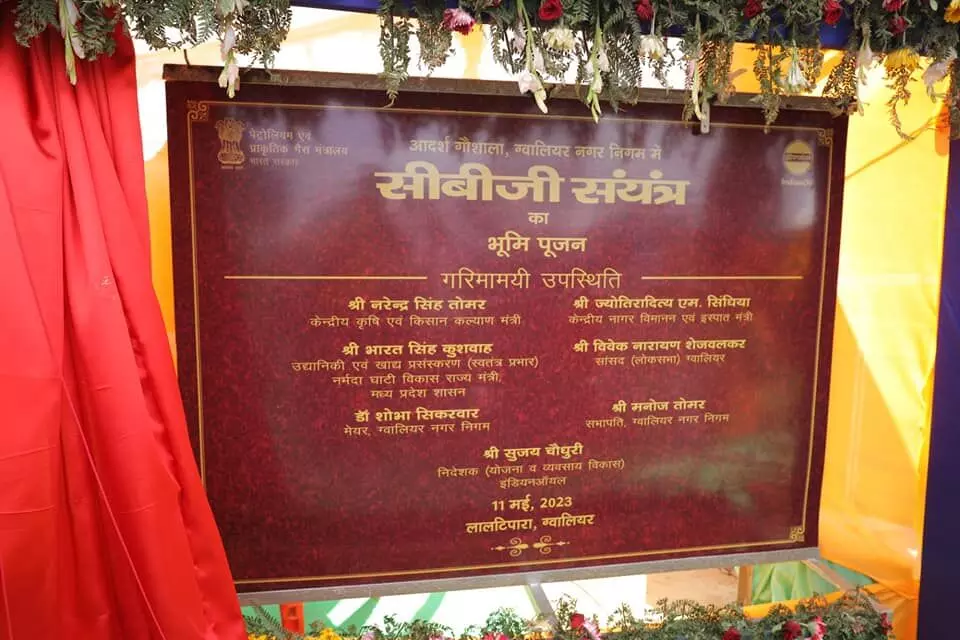 पेट्रोलियम एवं
प्राकृतिक गैस मंत्रालय
भारत सरकार
आदर्श गौशाला, ग्वालियर नगर निगम में
सीबीजी संयंत्र
का
भूमि पूजन
गरिमामयी उपस्थिति
श्री नरेन्द्र सिंह तोमर
केन्द्रीय कृषि एवं किसान कल्याण मंत्री
श्री ज्योतिरादित्य एम. सिंधिया
केन्द्रीय नागर विमानन एवं इस्पात मंत्री
श्री भारत सिंह कुशवाह
उद्यानिकी एवं खाद्य प्रसंस्करण (स्वतंत्र प्रभार)
नर्मदा घाटी विकास राज्य मंत्री,
मध्य प्रदेश शासन
श्री विवेक नारायण शेजवलकर
सांसद (लोकसभा) ग्वालियर
डॉ शोभा सिकरवार
मेयर, ग्वालियर नगर निगम
श्री मनोज तोमर
सभापति, ग्वालियर नगर निगम
श्री सुजय चौधुरी
निदेशक (योजना व व्यवसाय विकास)
इंडियनऑयल
11 मई, 2023
लालटिपारा, ग्वालियर
IndianOil